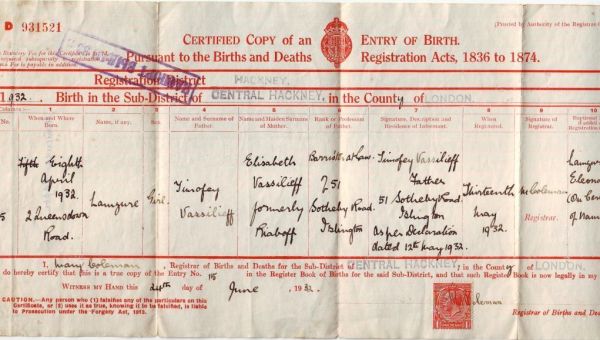 D 931521
[Printed by Authority of the Registrar G
CERTIFIED COPY of an ENTRY OF BIRTH.
Pursuant to the Births and Deaths Registration Acts, 1836 to 1874.
Statutory Fee for this Certificate is
Fee is payable in addition
Registration District HACKNEY.
1932. Birth in the Sub-District of CENTRAL HACKNEY, in the County of LONDON.
Columns:— 1 2 3 4 5 6 7 8 9 10
No. When and Where Born. Name, if any. Sex. Name and Surname of Father. Name and Maiden Surname of Mother. Rank or Profession of Father. Signature, Description and Residence of Informant. When Registered. Signature of Registrar.
Fifth Eighth April 1932 2 Queensdown Road.
Girl.
Timofey Vassilieff
Elisabeth Vassilieff formerly Riaboff
Barrister at Law
51 Sotheby Road. Islington
Timofey Vassilieff Father 51 Sotheby Road. Islington As per Declaration dated 12th May 1932.
Thirteenth May 1932.
M Coleman Registrar.
I, Mary Coleman, Registrar of Births and Deaths for the Sub-District of CENTRAL HACKNEY, in the County of LONDON.
do hereby certify that this is a true copy of the Entry No. 115 in the Register Book of Births for the said Sub-District, and that such Register Book is now legally in my
WITNESS MY HAND this 24th day of June, 1932.
CAUTION.—Any person who (1) falsifies any of the particulars on this
Certificate, or (2) uses it as true, knowing it to be falsified, is liable
to Prosecution under the Forgery Act, 1913.
Coleman
Registrar of Births and Death